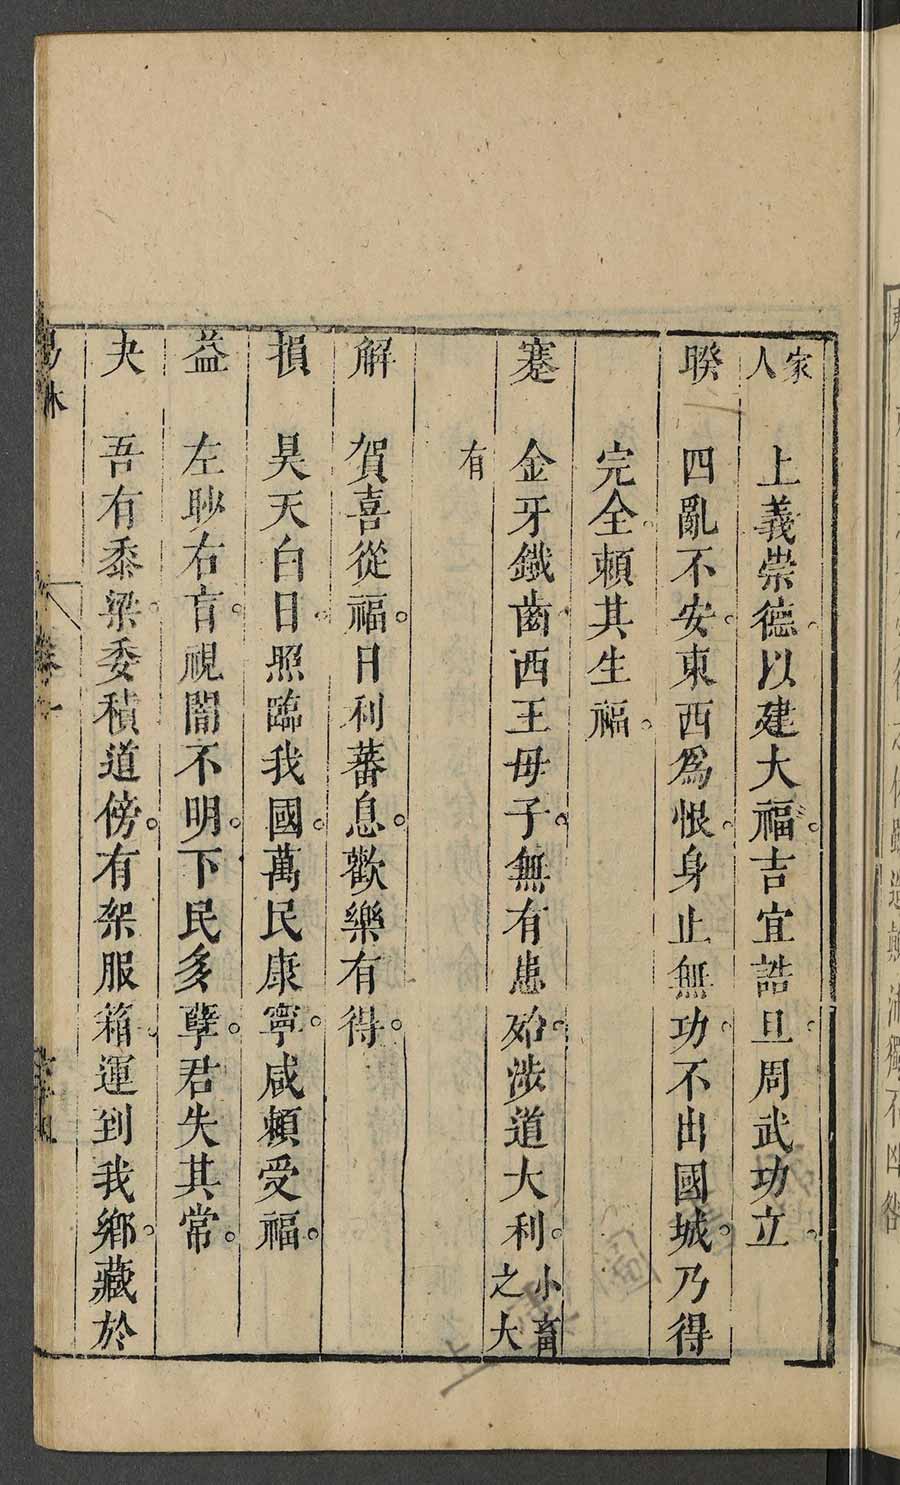 家人 上義崇德。以建大福。吉宜誥旦。周武功立。
睽 四亂不安。東西爲恨。身止無功。不出國城。乃得
完全。賴其生福。
蹇 金牙鐵齒。西王母子。無有患殆。涉道大利。小畜之大
有
解 賀喜從福。日利蕃息。歡樂有得。
損 昊天白日。照臨我國。萬民康寧。咸賴受福。
益 左眇右盲。視闇不明。下民多孽。君失其常。
夬 吾有黍粱。委積道傍。有架服箱。運到我鄉。藏於
易林 卷一